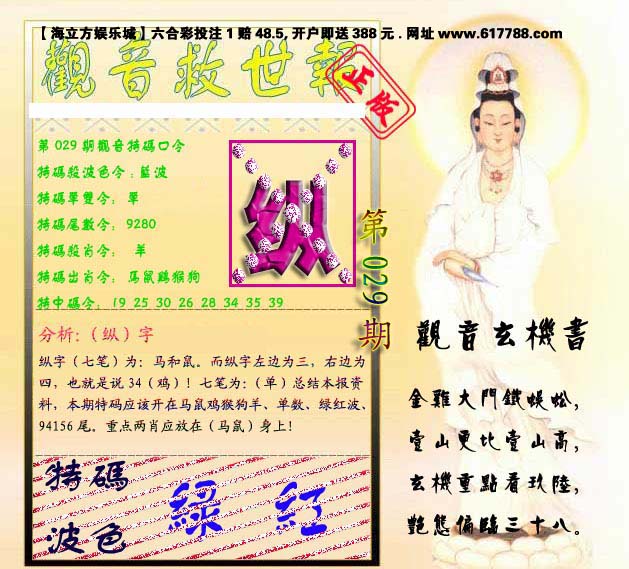 【海立方娱乐城】六合彩投注1赔48.5,开户即送388元.网址www.617788.com
觀音救世報
正版
第029期觀音特碼口令
特碼殺波色令：藍波
特碼單雙令： 單
特碼尾數令： 9280
特碼殺肖令： 羊
特碼出肖令： 馬鼠鷄猴狗
特中碼令： 19 25 30 26 28 34 35 39
纵
第029期
分析:（纵）字
纵字（七笔）为：马和鼠。而纵字左边为三，右边为
四，也就是说34（鸡）！七笔为:（单）总结本报资
料，本期特码应该开在马鼠鸡猴狗羊、单数、绿红波、
94156尾。重点两肖应放在（马鼠）身上！
特碼
波色
綠 紅
觀音玄機書
金雞大門鐵蜈蚣，
壹山更比壹山高，
玄機重點看玖陸，
艷態偏臨三十八。